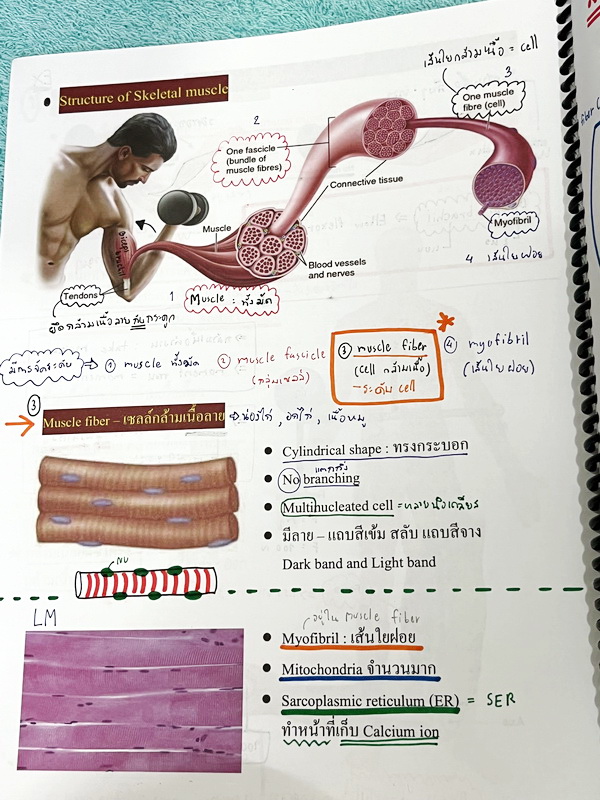 เส้นใยกล้ามเนื้อ = cell
Structure of Skeletal muscle
3
One muscle
fibre (cell)
2
One fascicle
(bundle of
muscle fibres)
Connective tissue
Muscle
Myofibril
4 เส้นใยฝอย
Blood vessels
and nerves
Tendons
1 Muscle : ทั้งมัด
ยึดกล้ามเนื้อลายกับกระดูก
มีการจัดระดับ ① muscle ทั้งมัด ② muscle fascicle ③ muscle fiber ④ myofibril
(กลุ่มเซลล์) (cell กล้ามเนื้อ) (เส้นใยฝอย)
- ระดับ cell
③
Muscle fiber – เซลล์กล้ามเนื้อลาย น่องไก่ , อกไก่ , เนื้อหมู
Cylindrical shape : ทรงกระบอก
แตกกิ่ง
No branching
Multinucleated cell = หลายนิวเคลียส
มีลาย – แถบสีเข้ม สลับ แถบสีจาง
Dark band and Light band
NU
LM
อยู่ใน muscle fiber
Myofibril : เส้นใยฝอย
Mitochondria จำนวนมาก
Sarcoplasmic reticulum (ER) = SER
ทำหน้าที่เก็บ Calcium ion